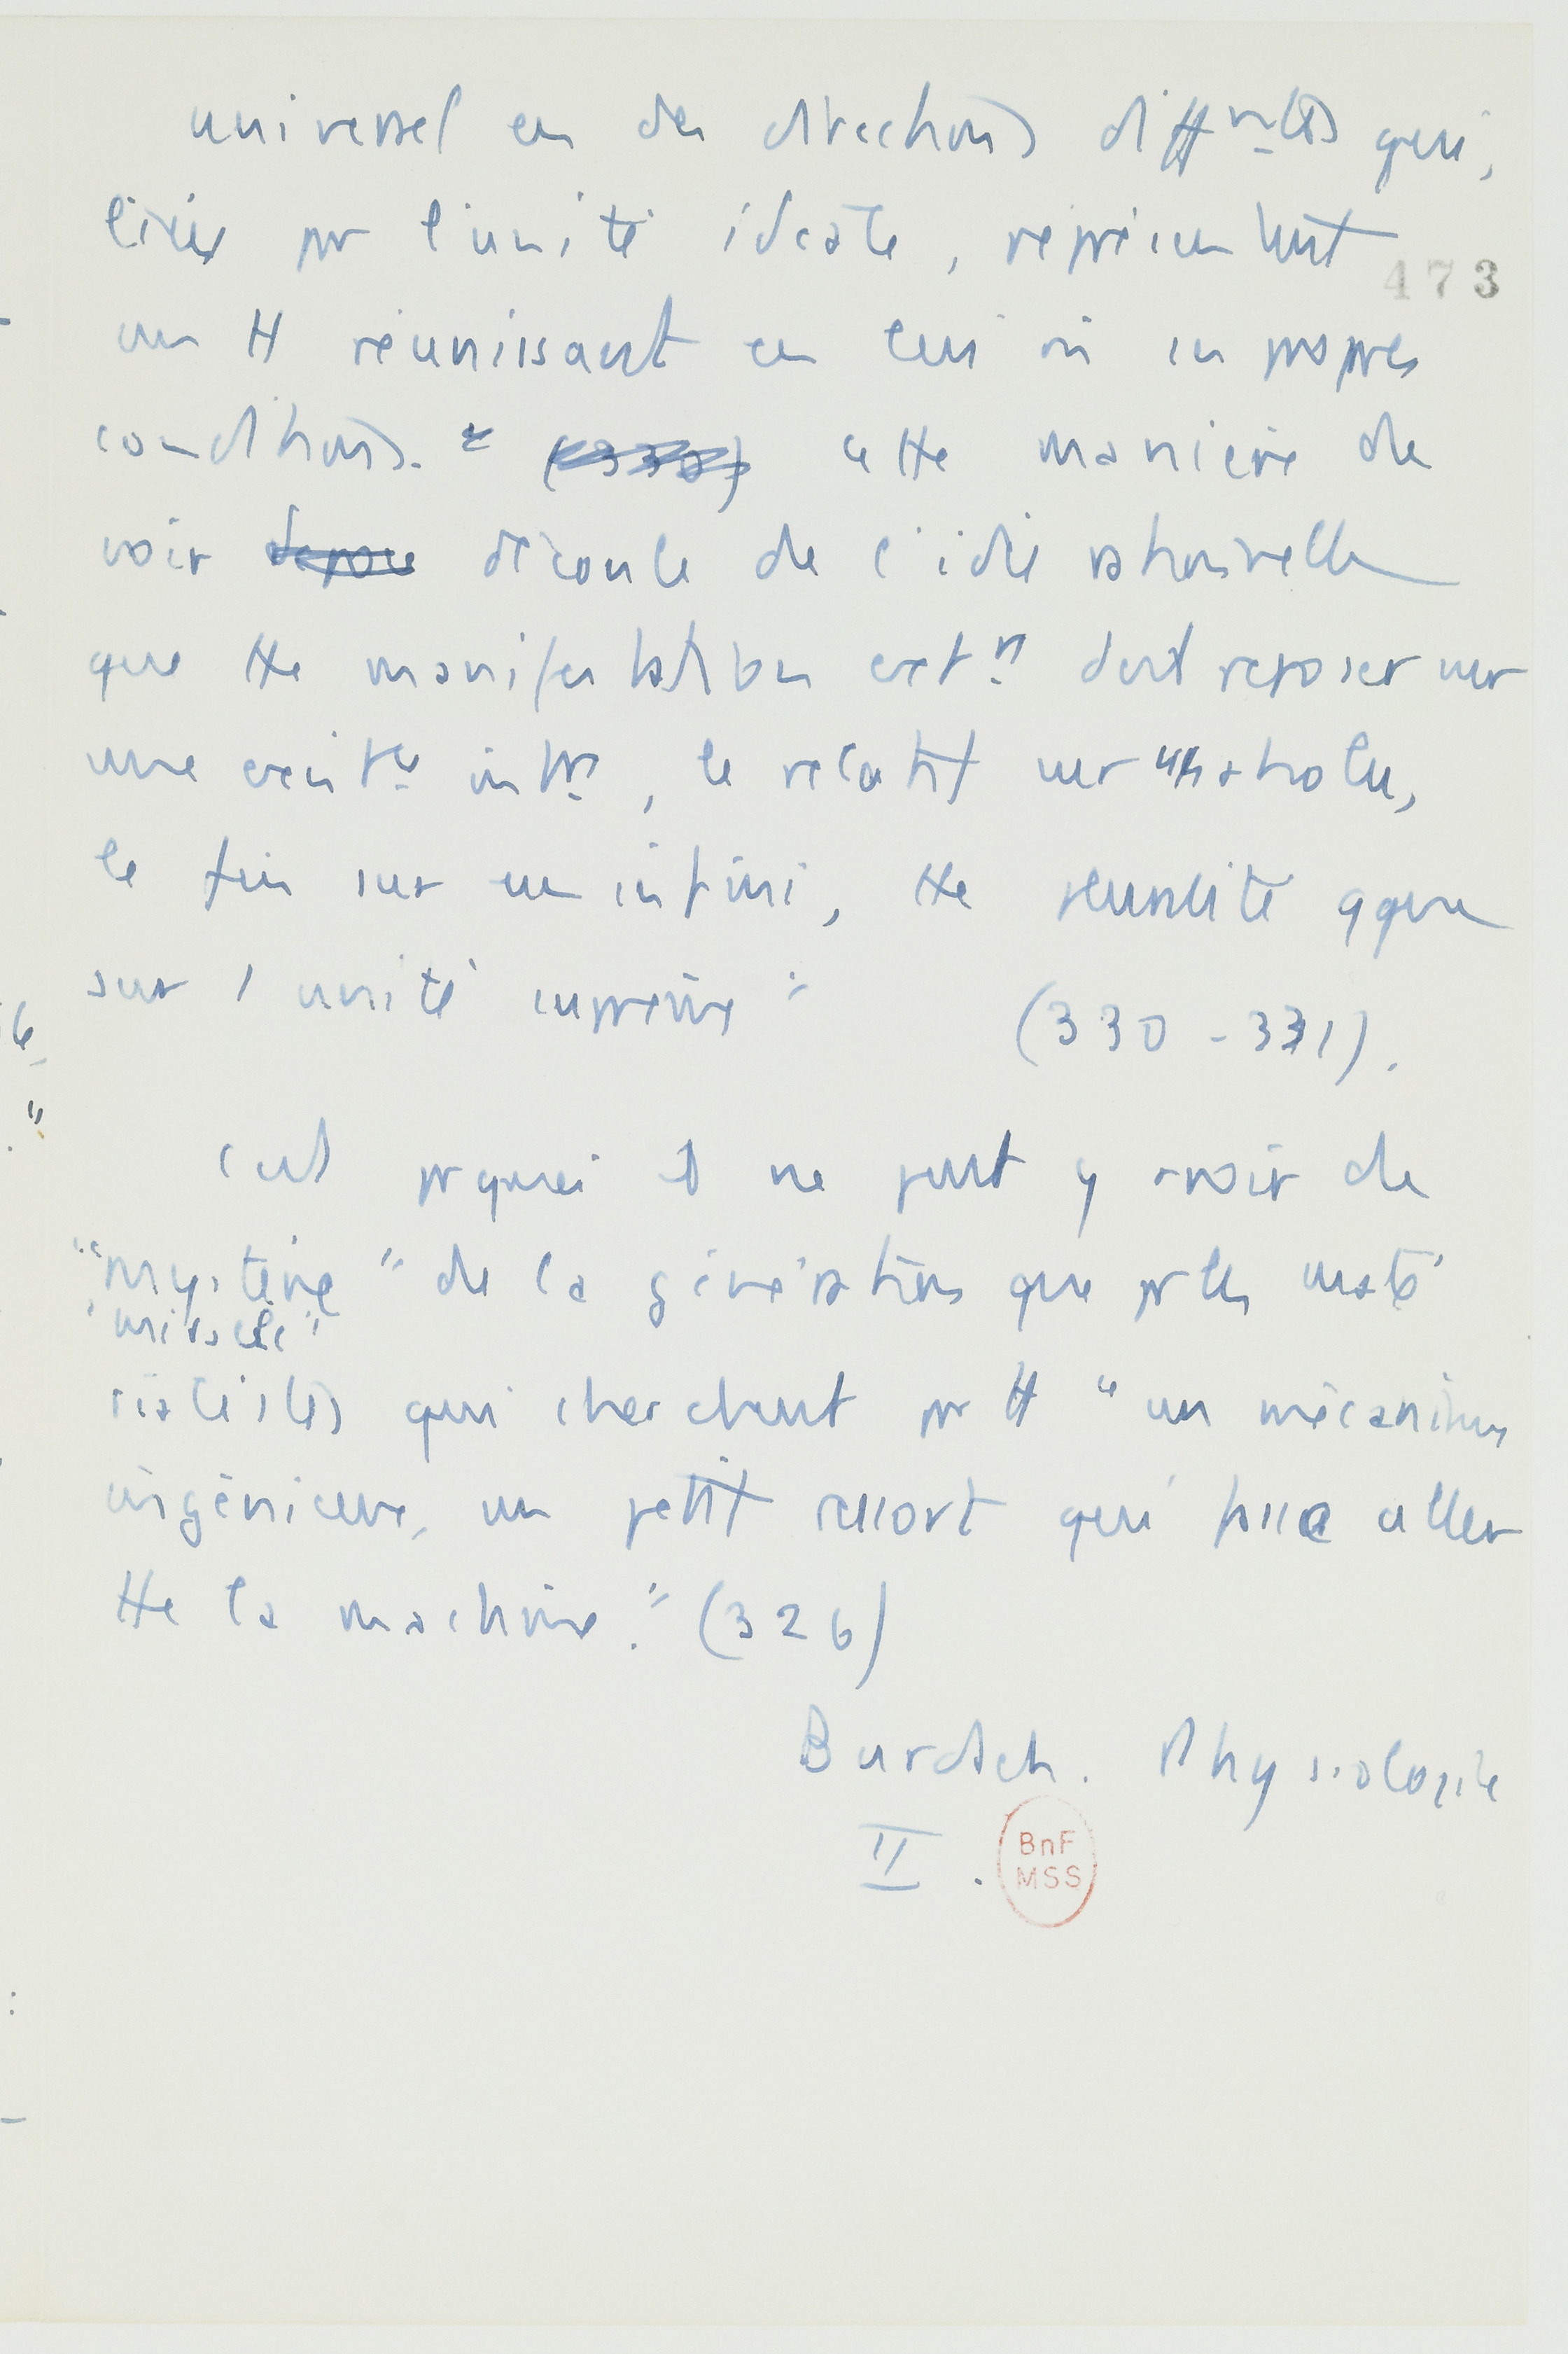 universel en des directions diffntes qui,
liées pr l'unité idéale, représentent
un tt réunissant en lui ses propres
conditions. "  cette manière de
voir découle de l'idée rationnelle
que tte manifestation extre doit reposer sur
une existce intre, le relatif sur un absolu,
le fini sur un infini, tte pluralité qque
sur 1 unité suprême" (330-331).
473
C'est pquoi il ne peut y avoir de
"mystère" de la génération que pr les maté
"miracle"
rialistes qui cherchent pr tt "un mécanisme
ingénieux, un petit ressort qui fasse aller
tte la machine." (326)
Burdach. Physiologie
II.
BnF
MSS